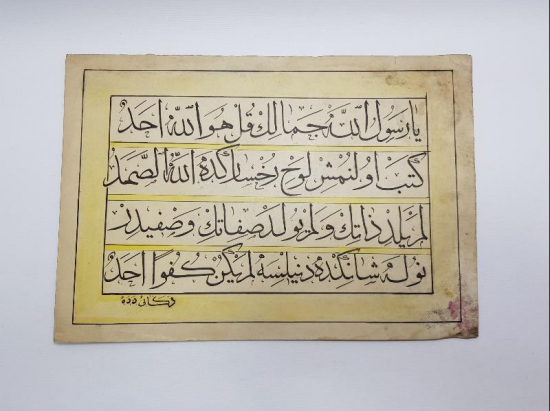 يا رسول الله جمالك قل هو الله احد
كتب اولنمش لوح رخساركده الله الصمد
لم يلد ذاتك ولم يولد صفاتك وصفيدر
نوله شانكده دنيلسه لم يكن كفوا احد